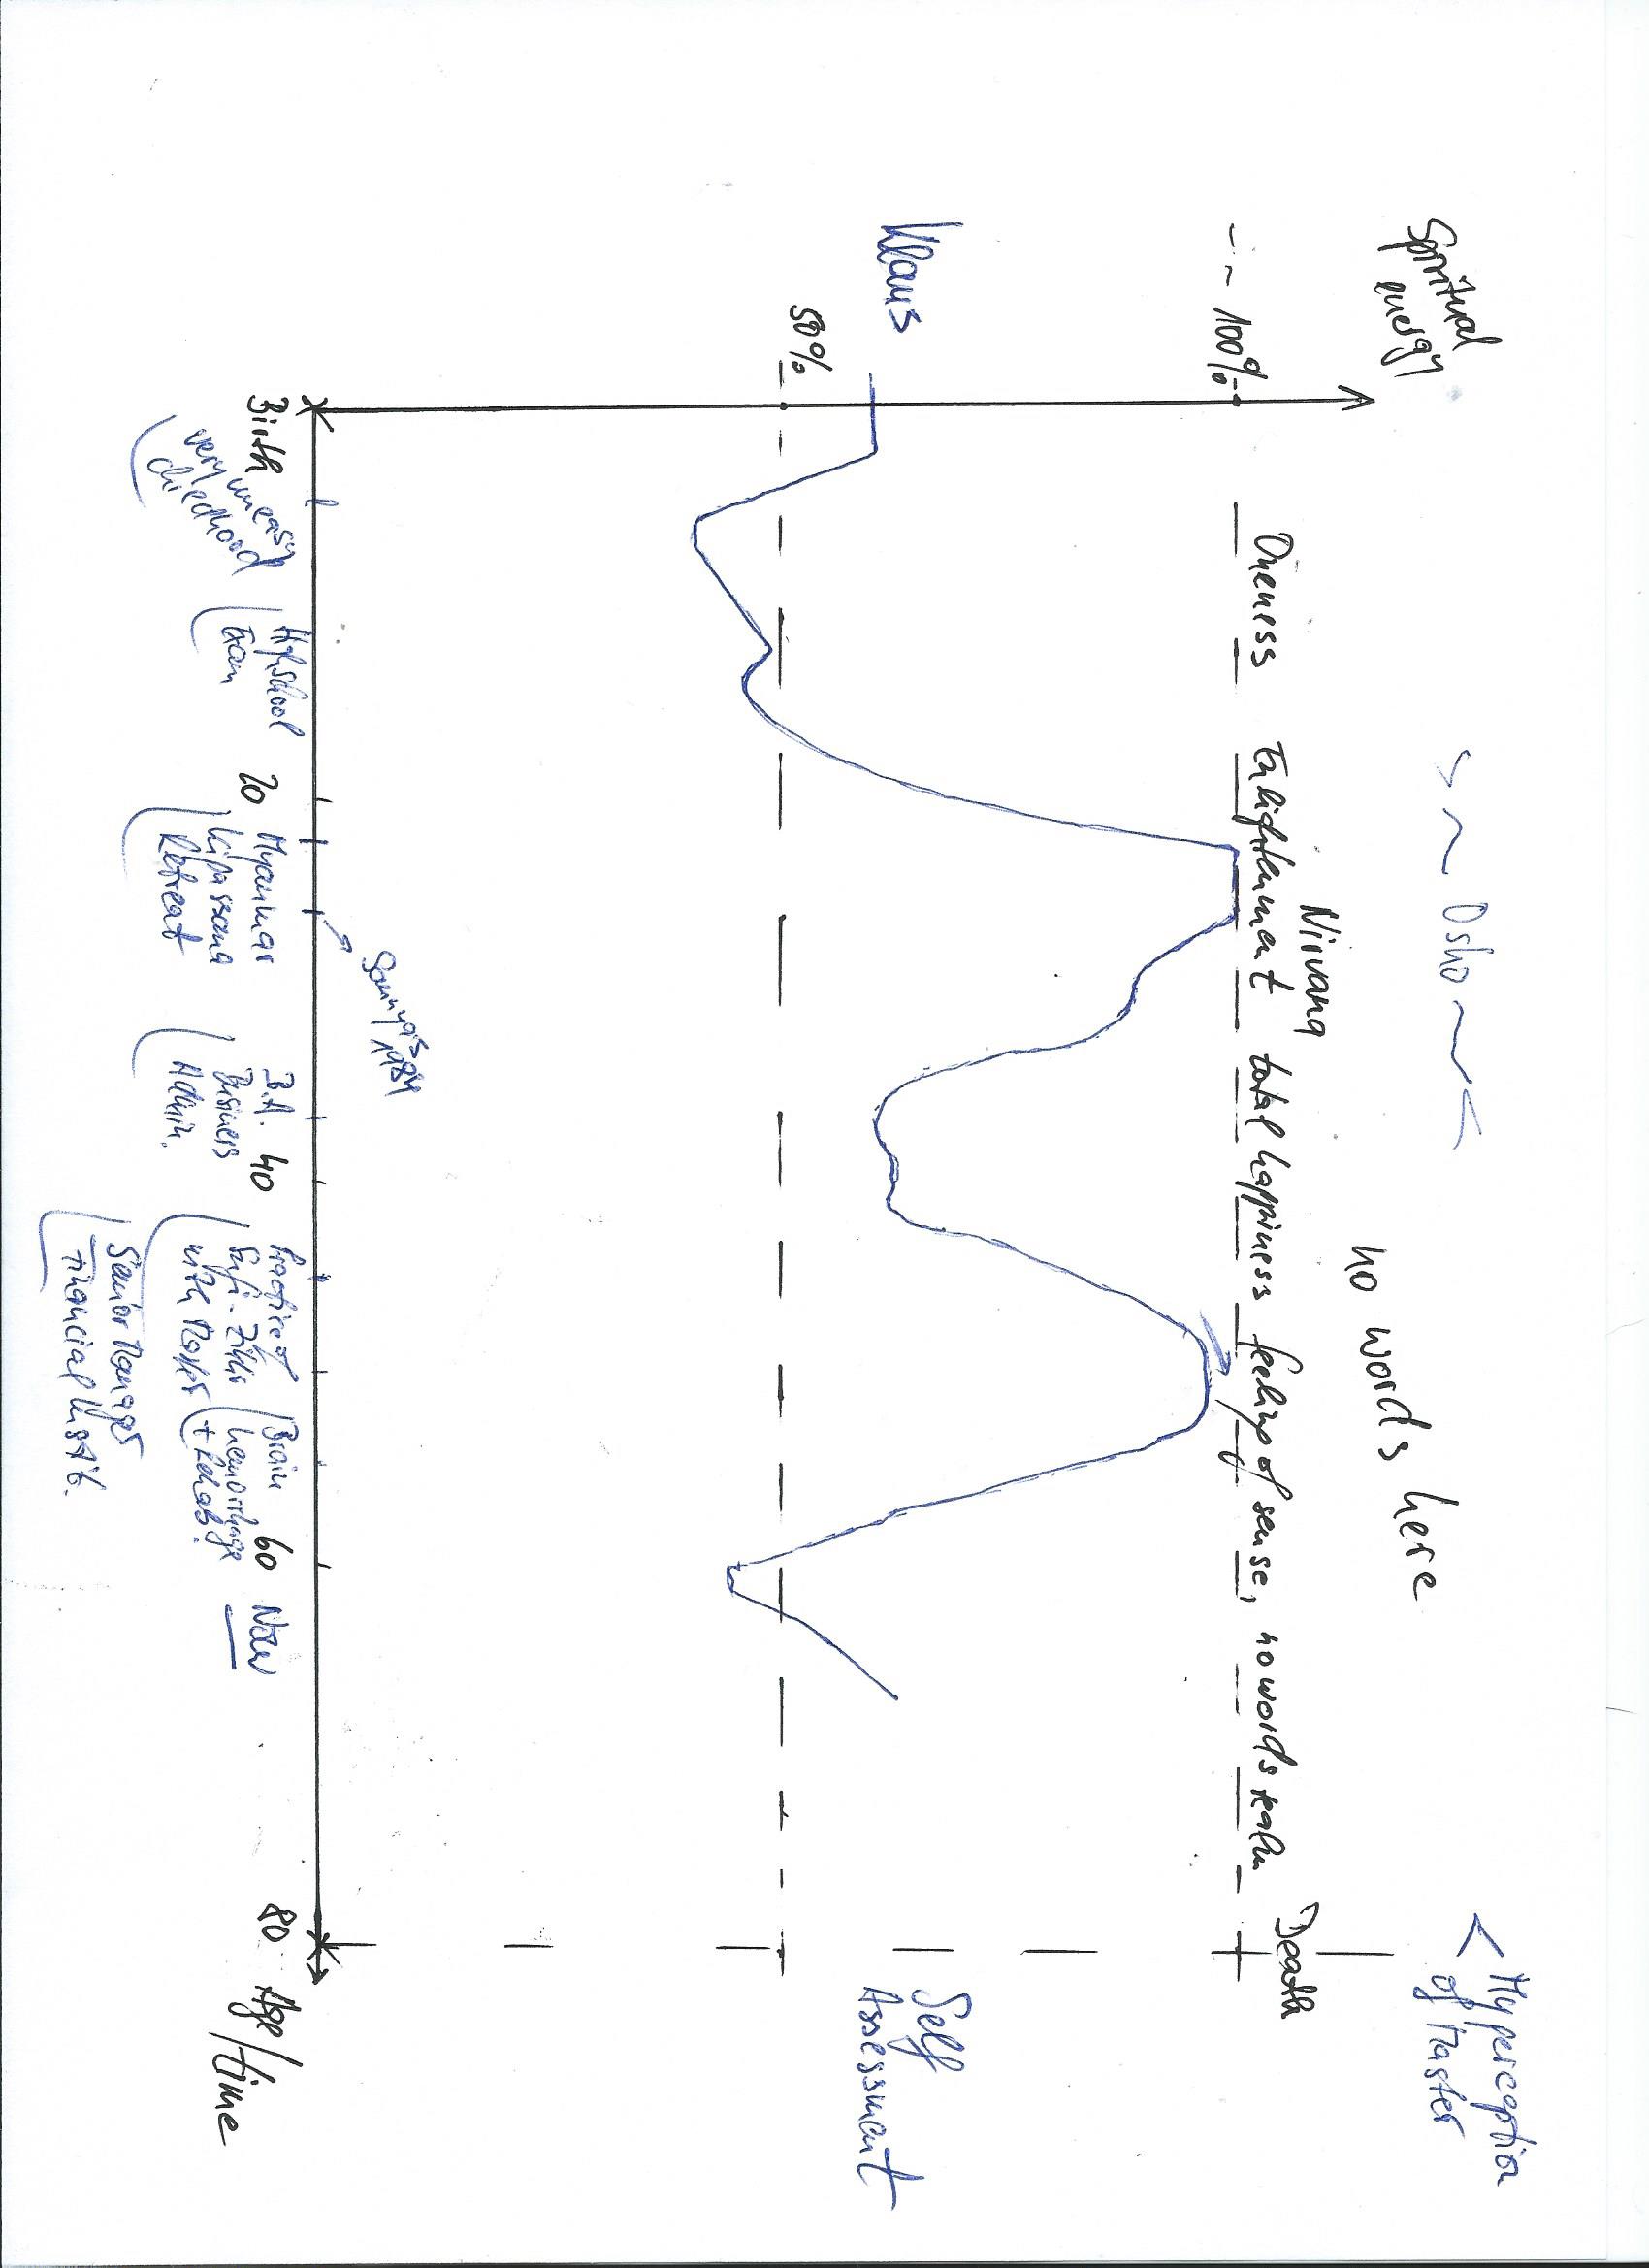 Spiritual
energy
-- 100%
Klaus
50%
~ Osho ~
no words here
Nirvana
Oneness Enlightenment total happiness feeling of sense, no words realm
Death
< My perception
of Master
Self
Assessment
Sannyas
1984
Birth
very uneasy
childhood
Highschool
Exam
20
Myanmar
Vipassana
Retreat
B.A.
Business
Admin.
40
Practice of
Sufi-Zikr
with Master
Brain
hemorrhage
+ Rehab.
Senior Manager
Financial Instit.
60
Now
80
Age/time